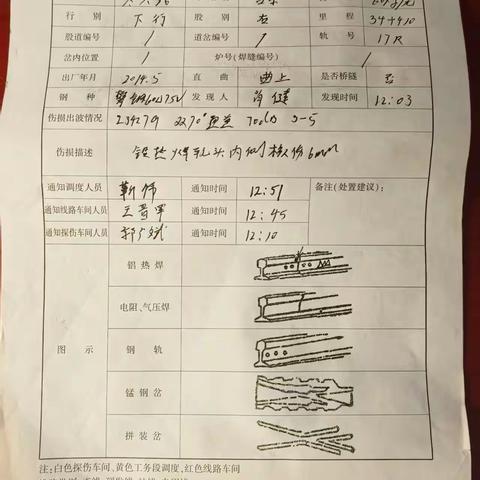 行 别 下行 股 别 右 里 程 34+410
股道编号 1 道岔编号 1 轨 号 17R
岔内位置 1 炉号(焊缝编号)
出厂年月 2014.5 直 曲 曲上 是否桥隧 否
钢 种 发现人 发现时间 12:03
伤损出波情况 双70° 3-5
伤损描述 铝热焊轨头内侧核伤6mm
通知调度人员 靳伟 通知时间 12:51 备注(处置建议):
通知线路车间人员 通知时间 12:45
通知探伤车间人员 通知时间 12:10
图 示
铝 热 焊
电阻、气压焊
钢 轨
锰 钢 岔
拼 装 岔
注:白色探伤车间、黄色工务段调度、红色线路车间